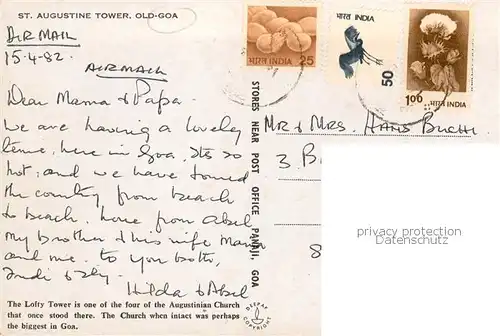 ST. AUGUSTINE TOWER, OLD-GOA
AIRMAIL
15-4-82
AIRMAIL
Dear Mama & Papa.
We are having a lovely
time, here in Goa. Its so
hot, and we have toured
the country from beach
to beach. Love from Abel
my brother & his wife
and me. to you both,
Hilda & Abel
The Lofty Tower is one of the four of the Augustinian Church
that once stood there. The Church when intact was perhaps
the biggest in Goa.
STORES NEAR POST OFFICE PANAJI, GOA
25
भारत INDIA
भारत INDIA
50
1.00 भारत INDIA
Mr & Mrs. Hans
3. B
8
privacy protection
Datenschutz
DEEPAK
COPYRIGHT